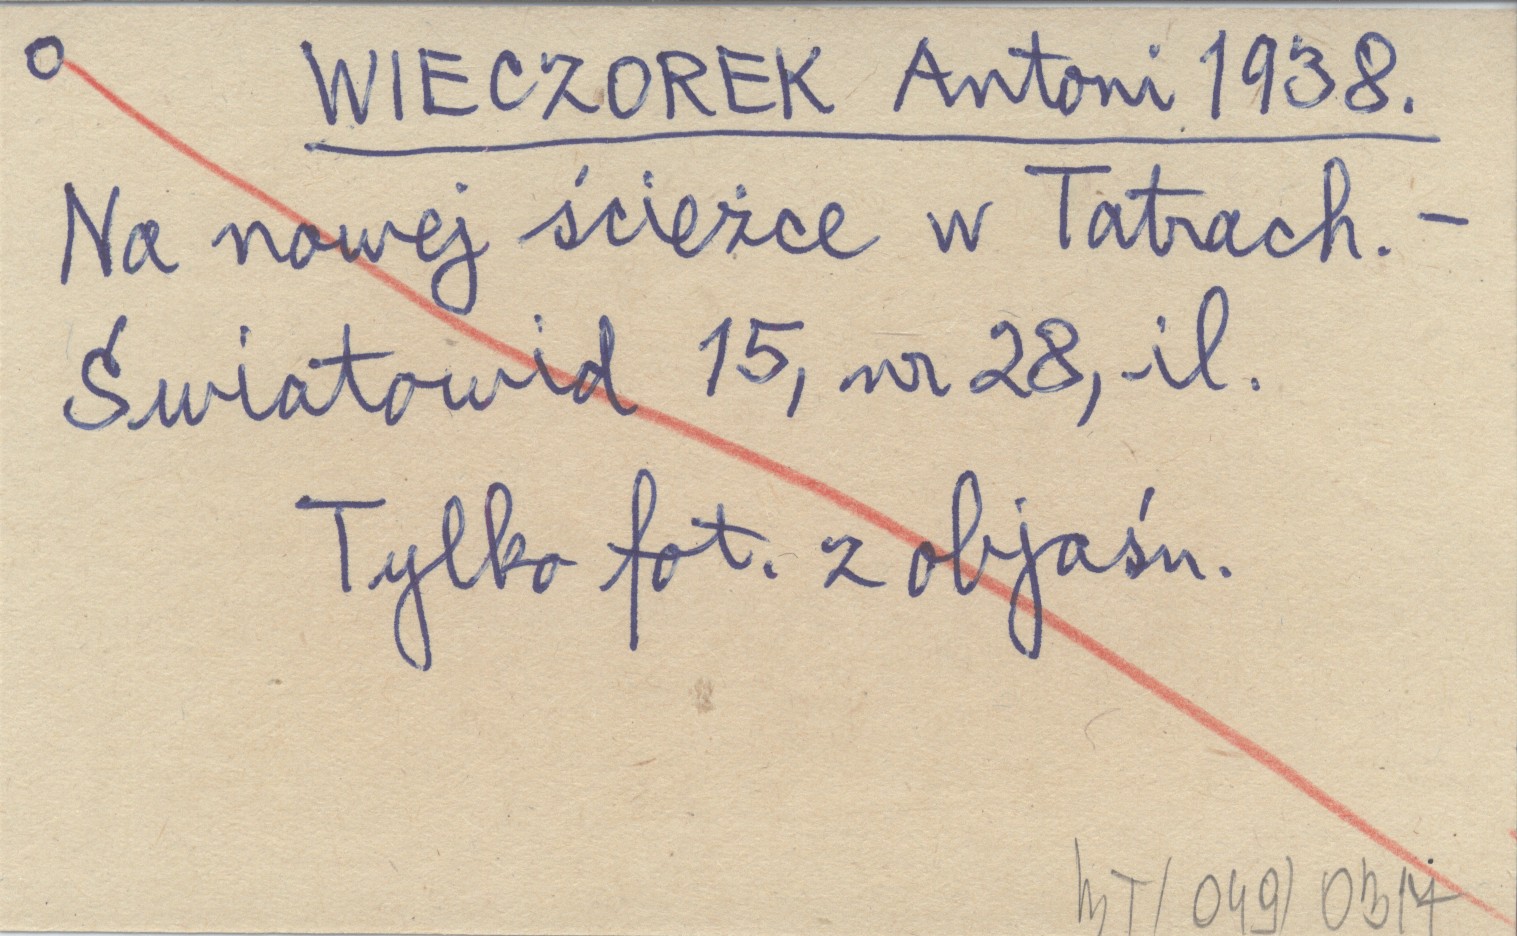 WIECZOREK Antoni 1938.
Na nowej ścieżce w Tatrach. –
Światowid 15, nr 28, il.
Tylko fot. z objaśn.
049/ 0314